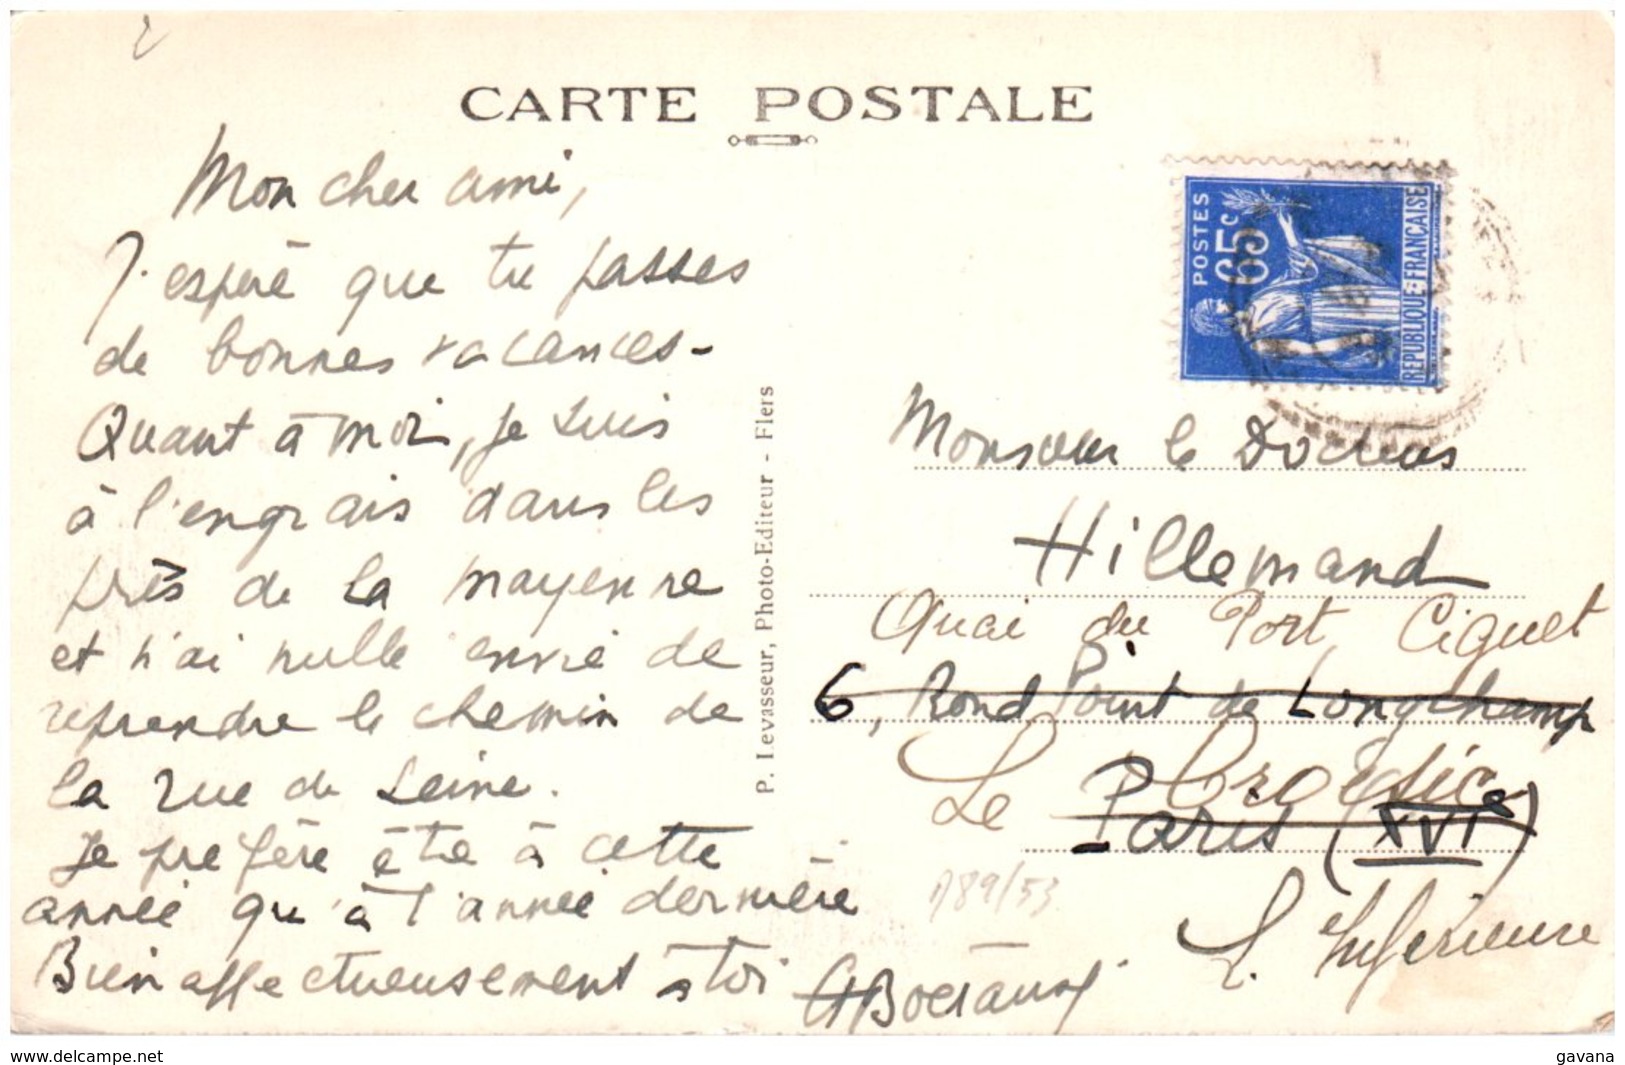 CARTE POSTALE
Mon cher ami,
J'espère que tu passes
de bonnes vacances-
Quant à moi, je suis
à l'engrais dans les
près de la Mayenne
et n'ai nulle envie de
reprendre le chemin de
la rue de Seine.
Je préfère être à cette
année qu'à l'année dernière
Bien affectueusement à toi
P. Levasseur, Photo-Editeur - Flers
POSTES
65c
REPUBLIQUE-FRANCAISE
Monsieur le Docteur
Hillemand
Quai du Port Ciguet
6, Rond Point de Longchamp
Le Croisic
Paris (XVIe)
L. Inférieure
A89/53
www.delcampe.net
gavana